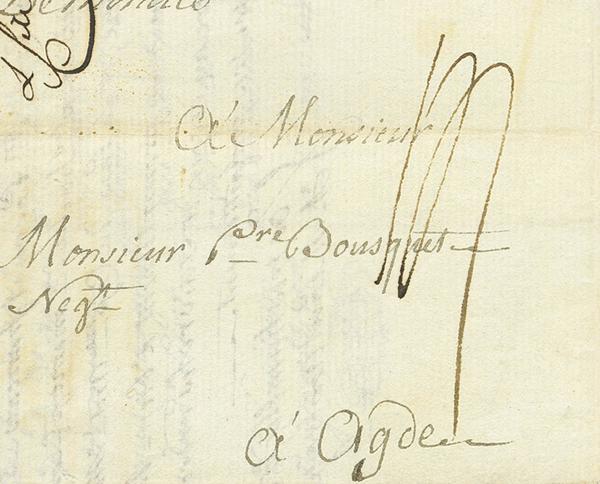 á Monsieur
Monsieur Pre. Bousquet
Negt.
á Agde